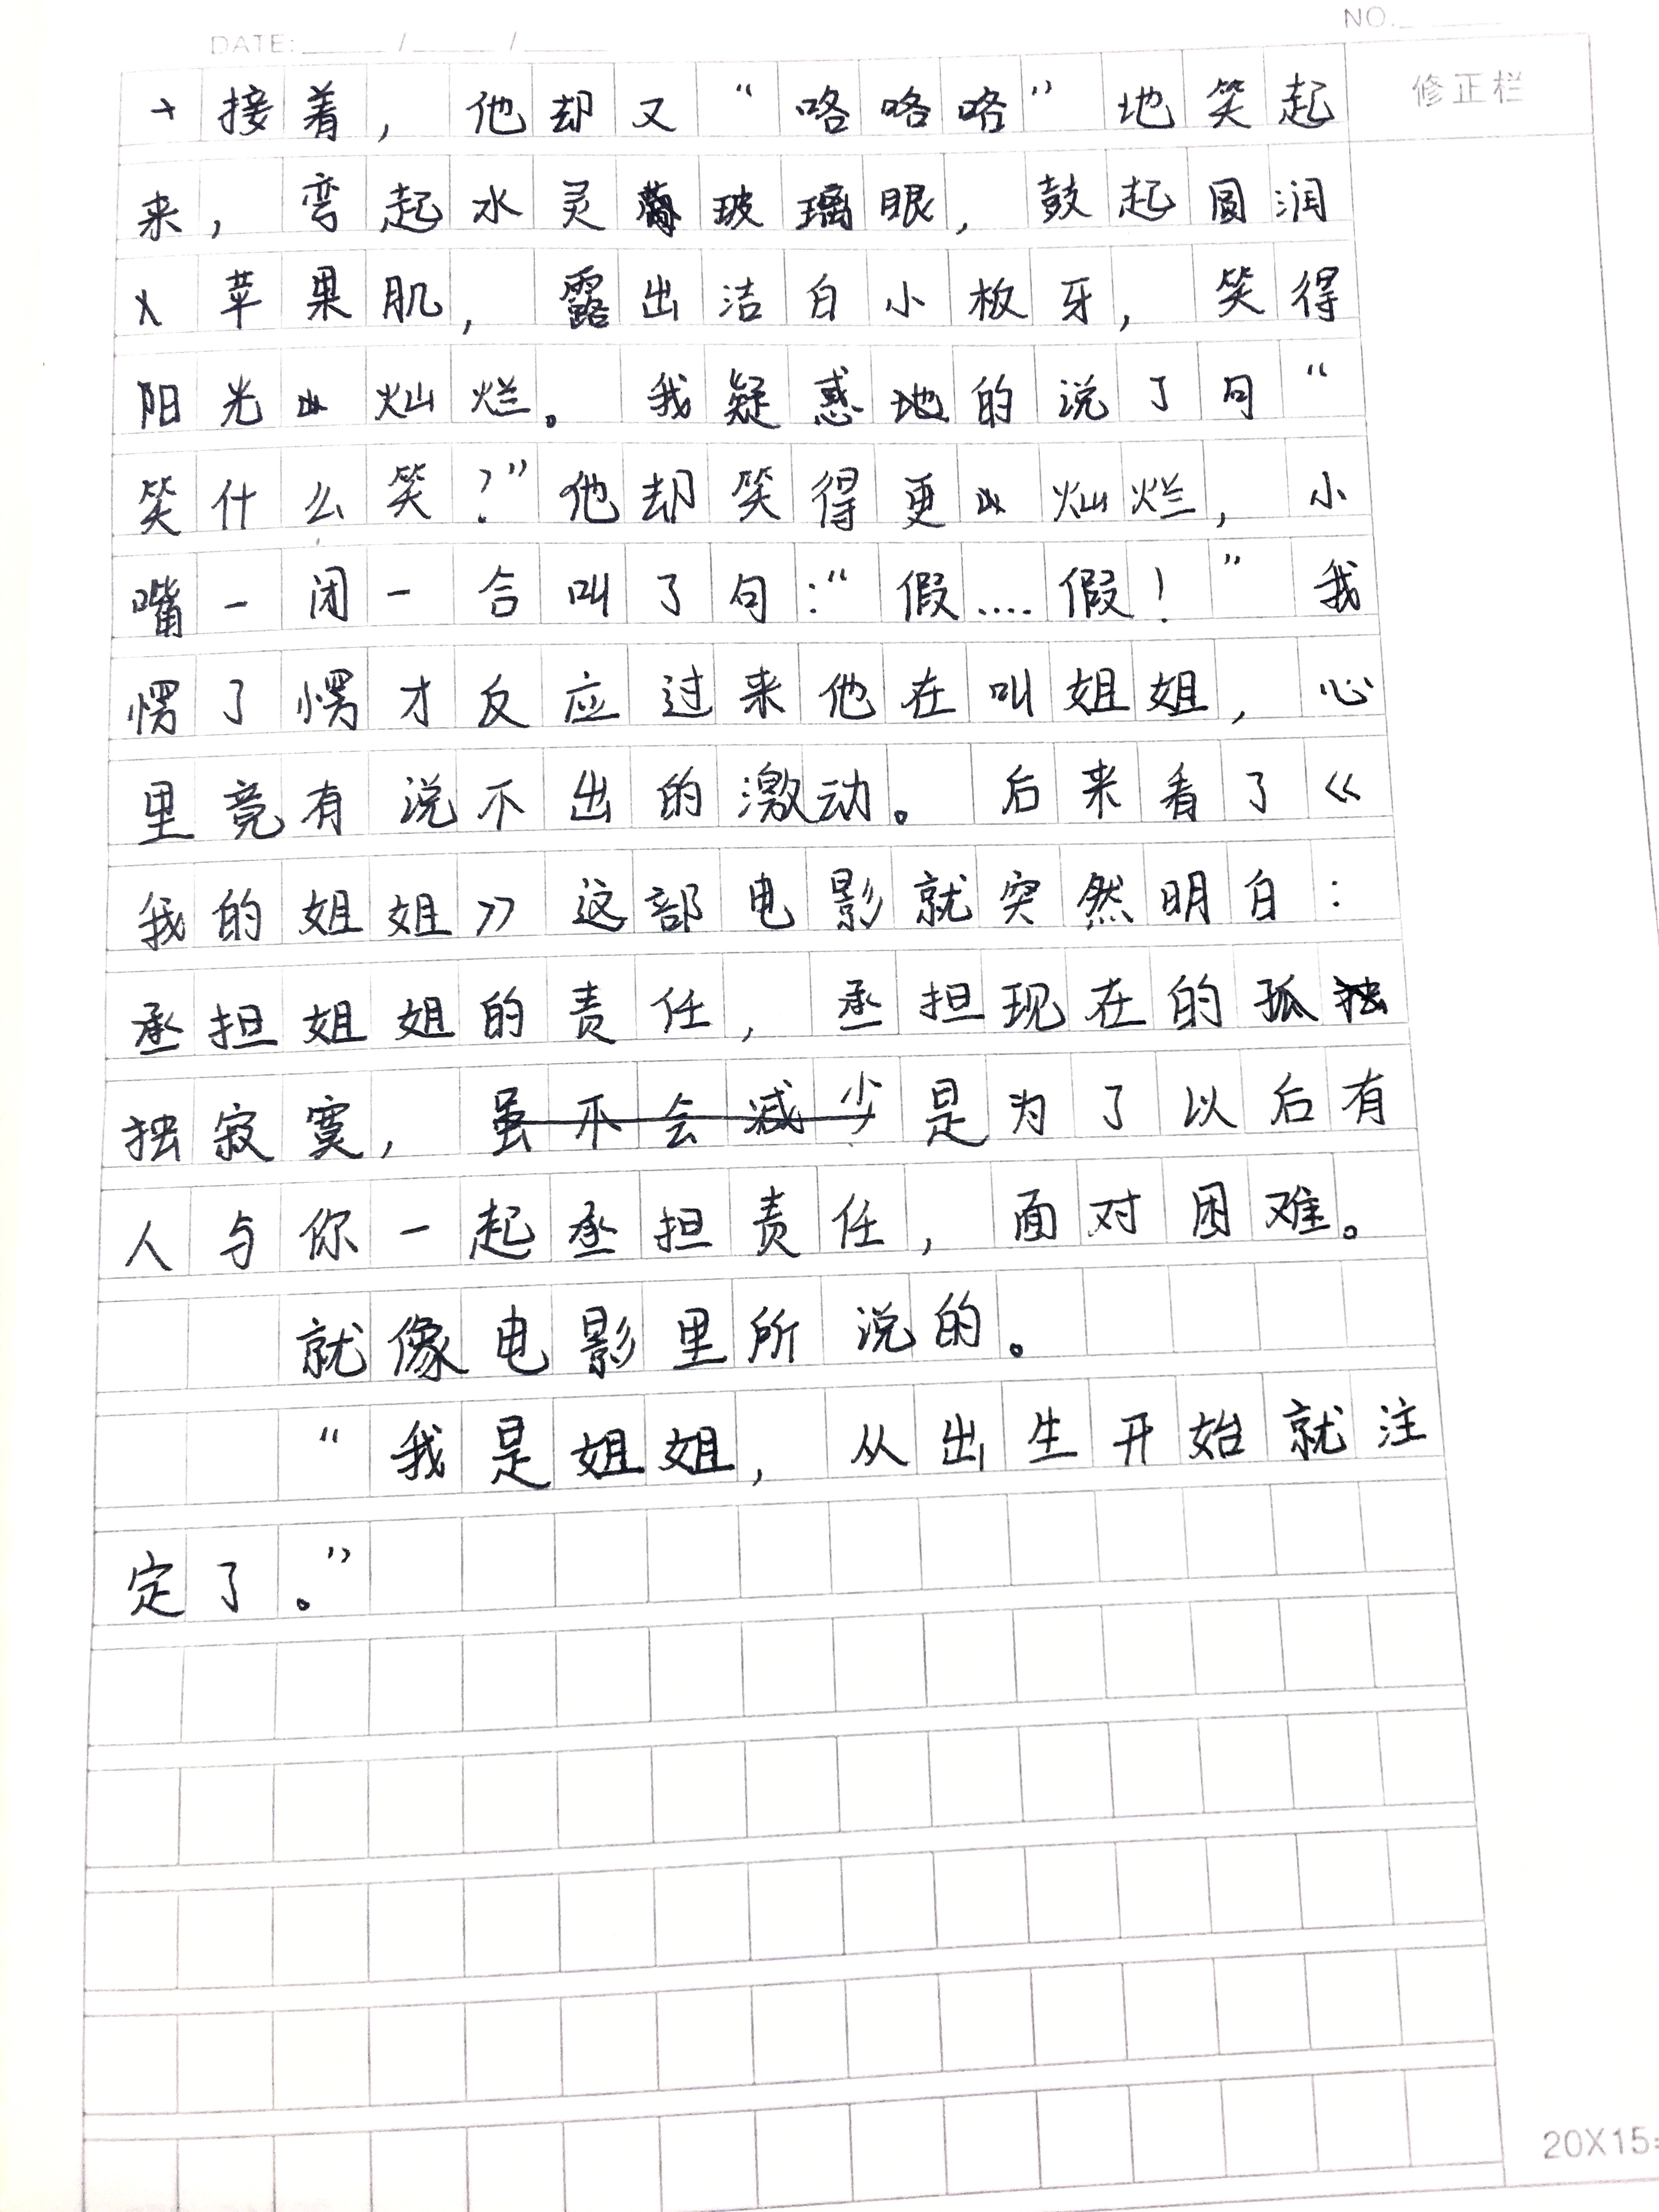 DATE: / / NO.
接着，他却又“咯咯咯”地笑起 修正栏
来，弯起水灵玻璃眼，鼓起圆润
苹果肌，露出洁白小板牙，笑得
阳光灿烂。我疑惑地的说了句“
笑什么笑？”他却笑得更灿烂，小
嘴一闭一合叫了句：“假....假！”我
愣了愣才反应过来他在叫姐姐，心
里竟有说不出的激动。后来看了《
我的姐姐》这部电影就突然明白：
承担姐姐的责任，承担现在的孤独
独寂寞，虽不会减少是为了以后有
人与你一起承担责任，面对困难。
就像电影里所说的。
“我是姐姐，从出生开始就注
定了。”
20X15=